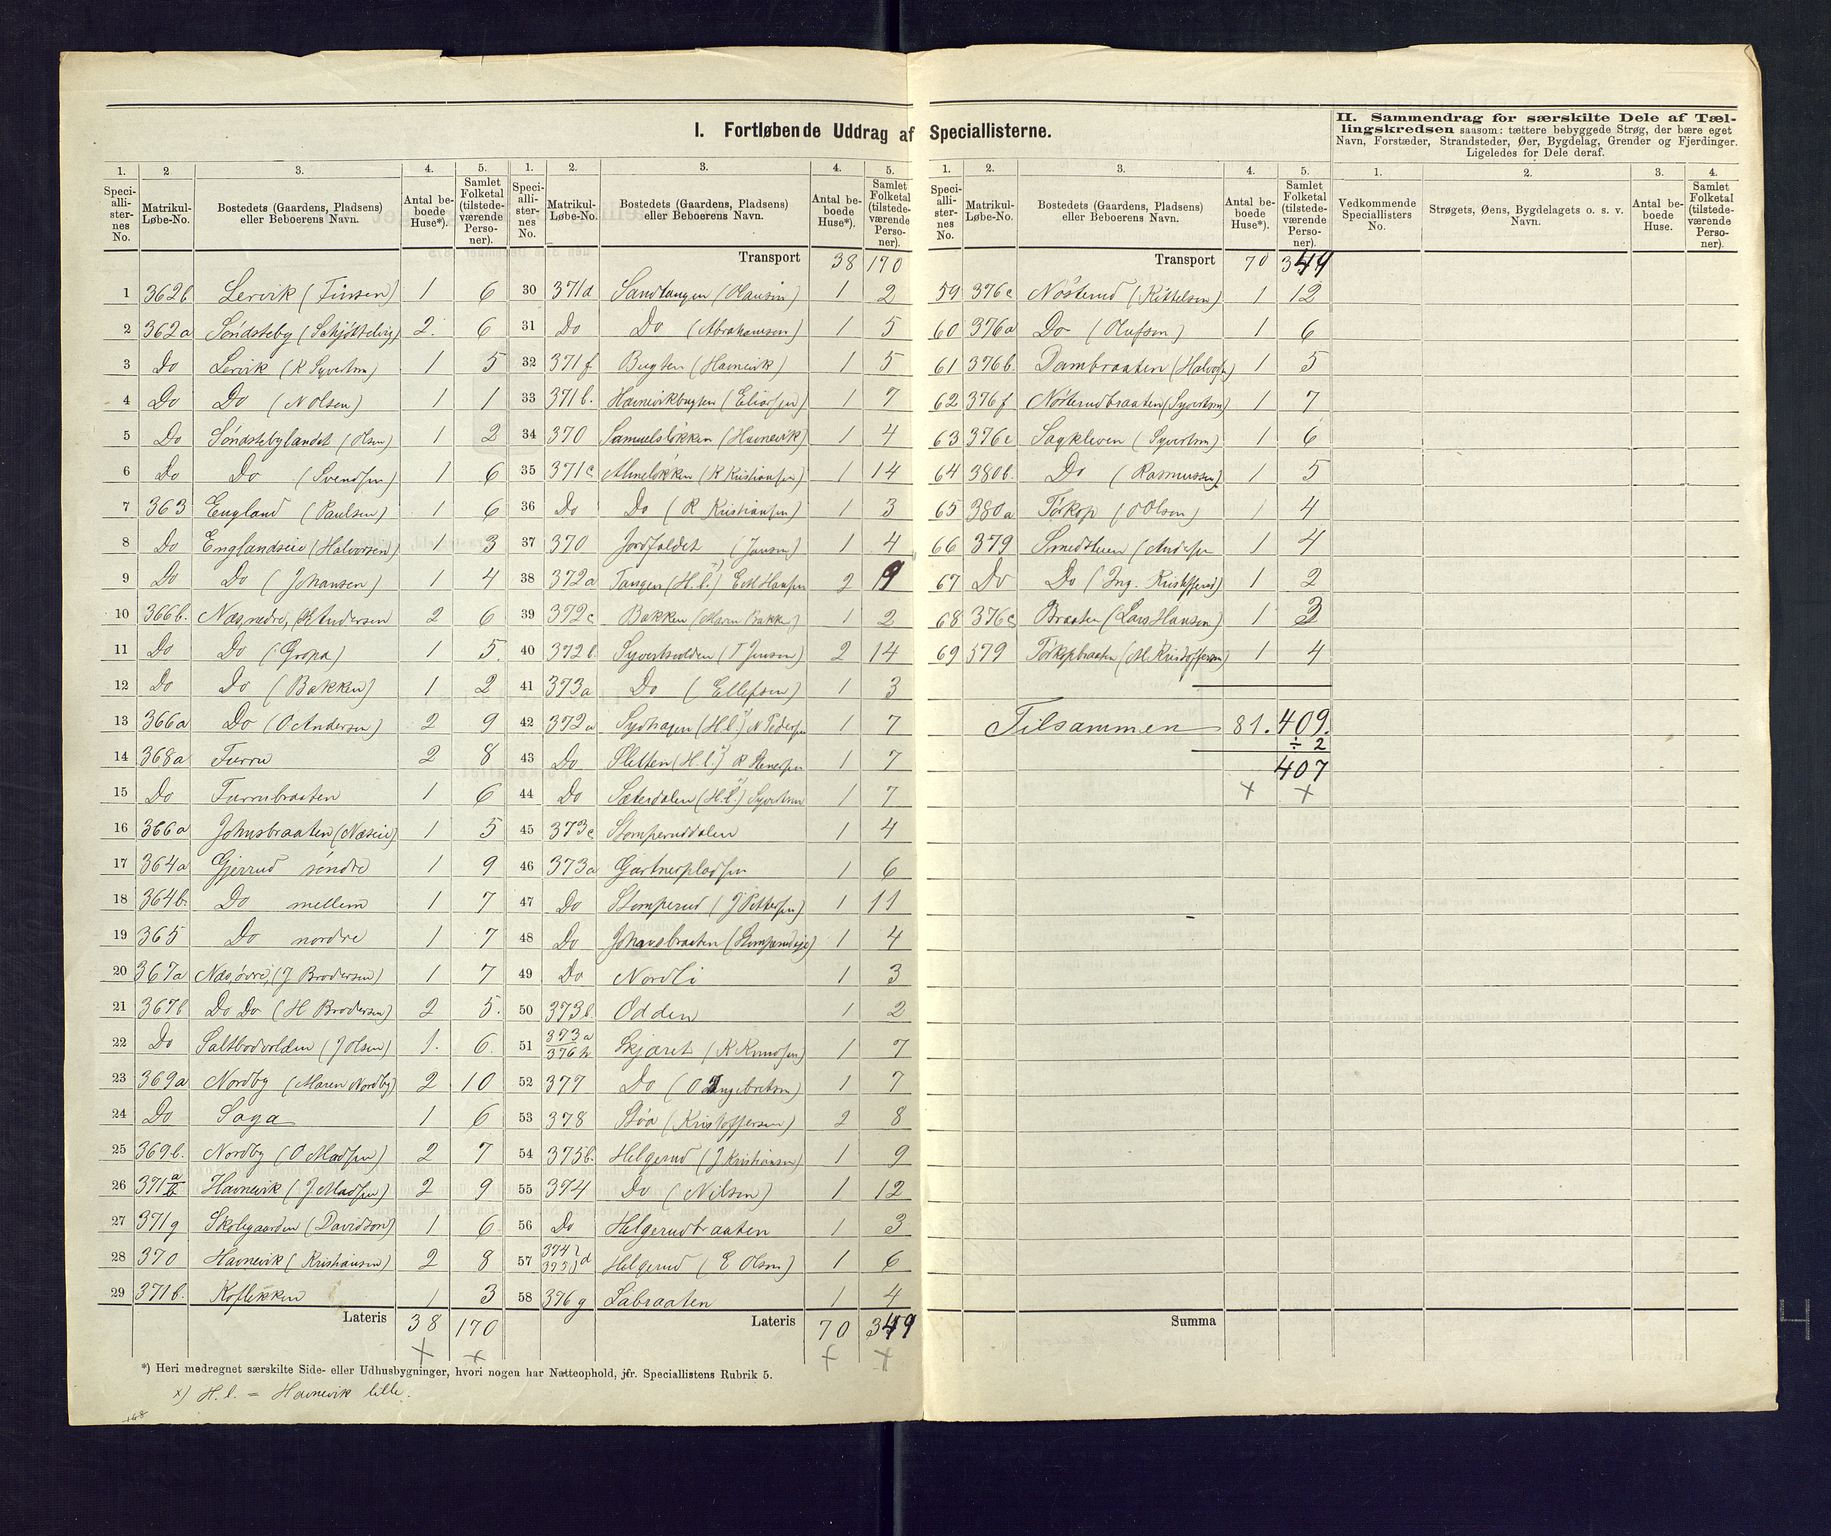 I. Fortløbende Uddrag af Speciallisterne.
1. 2 3. 4. 5.
Speciallisternes No. Matrikul-Løbe-No. Bostedets (Gaardens, Pladsens) eller Beboerens Navn. Antal beboede Huse*). Samlet Folketal (tilstedeværende Personer).
1 362b Lervik (Finsen) 1 6
2 362a Söndsteby (Schjöttelvig) 2. 6
3 Do Lervik (R Syvertsen) 1 5
4 Do Do (N Olsen) 1 1
5 Do Söndstebylandet (Olsen) 1 2
6 Do Do (Svendsen) 1 6
7 363 England (Paulsen) 1 6
8 Do Englandseie (Halvorsen) 1 3
9 Do Do (Johansen) 1 4
10 366b. Næs, nedre, (H Andersen 2 6
11 Do Do (Gropa) 1 5.
12 Do Do (Bakken) 1 2
13 366a Do (O Andersen) 2 9
14 368a Furru 2 8
15 Do Furrubraaten 1 6
16 366a Johnsbraaten (Næseie) 1 5
17 364a Gjerrud söndre 1 9
18 364b. Do mellem 1 7
19 365 Do nordre 1 7
20 367a Næs, övre, (J Brodersen) 1 7
21 367b Do Do (H Brodersen) 2 5.
22 Do Saltbodvolden (J Olsen) 1. 6.
23 369a Nordby (Maren Nordby) 2 10
24 Do Saga 1 6
25 369b. Nordby (O Madsen) 2 7
26 371 a/b Havnevik (J Madsen) 2 9
27 371g Skolegaarden (Davidson) 1 6
28 370 Havnevik (Kristiansen) 2 8
29 371b. Koflekken 1 3
Lateris 38 170
*) Heri medregnet særskilte Side- eller Udhusbygninger, hvori nogen har Natteophold, jfr. Speciallistens Rubrik 5.
x) H. l. = Havnevik lille.
168
1. 2. 3. 4. 5.
Speciallisternes No. Matrikul-Løbe-No. Bostedets (Gaardens, Pladsens) eller Beboerens Navn. Antal beboede Huse*). Samlet Folketal (tilstedeværende Personer).
Transport 38 170
30 371d Sandtangen (Hansen) 1 2
31 Do Do (Abrahamsen) 1 5
32 371f Bugten (Havnevik) 1 5
33 371b. Havnevikbugten (Eliassen) 1 7
34 370 Samuelslökken (Havnevik) 1 4
35 371c Almelökken (K Kristiansen) 1 14
36 Do Do (R Kristiansen) 1 3
37 370 Jordfaldet (Jensen) 1 4
38 372a Tangen (H. l. x)) E M Hansen 2 9
39 372c Bakken (Maren Bakke) 1 2
40 372b. Syvertsvolden (T Jensen) 2 14
41 373a Do (Ellefsen) 1 3
42 372a Sydhagen (H. l. x)) N Pedersen 1 7
43 Do Sletten (H. l. x)) R Stenersen 1 7
44 Do Sæterdalen (H. l. x)) Syvertsen 1 7
45 373c Stomperuddalen 1 4
46 373a Gartnerpladsen 1 6
47 Do Stomperud (J Pettersen) 1 11
48 Do Johnsbraaten (Stomperudeie) 1 4
49 Do Nordli 1 3
50 373b. Odden 1 2
51 373a 376h Skjæret (K Knudsen) 1 7
52 377 Do (O Ingebretsen) 1 7
53 378 Böa (Kristoffersen) 2 8
54 375b. Helgerud (J Kristiansen) 1 9
55 374 Do (Nilsen) 1 12
56 Do Helgerudbraaten 1 3
57 374 375 d Helgerud (E Olsen) 1 6
58 376g Labraaten 1 4
Lateris 70 349
1. 2. 3. 4. 5.
Speciallisternes No. Matrikul-Løbe-No. Bostedets (Gaardens, Pladsens) eller Beboerens Navn. Antal beboede Huse*). Samlet Folketal (tilstedeværende Personer).
Transport 70 349
59 376c Nösterud (Kittelsen) 1 12
60 376a Do (Olufsen) 1 6
61 376b Dambraaten (Halvorsen) 1 5
62 376f Nösterudbraaten (Syvertsen) 1 7
63 376e Sagkleven (Syvertsen) 1 6
64 380b. Do (Rasmussen) 1 5
65 380a Törkop (O Olsen) 1 4
66 379 Smedstuen (Andersen 1 4
67 Do Do (Ing. Kristoffersd) 1 2
68 376c Braaten (Lars Hansen) 1 3
69 579 Törkopbraaten (M. Kristoffersen) 1 4
Tilsammen 81. 409.
÷ 2
407
Summa
II. Sammendrag for særskilte Dele af Tællingskredsen saasom: tættere bebyggede Strøg, der bære eget Navn, Forstæder, Strandsteder, Øer, Bygdelag, Grender og Fjerdinger. Ligeledes for Dele deraf.
1. 2. 3. 4.
Vedkommende Speciallisters No. Strøgets, Øens, Bygdelagets o. s. v. Navn. Antal beboede Huse. Samlet Folketal (tilstedeværende Personer).